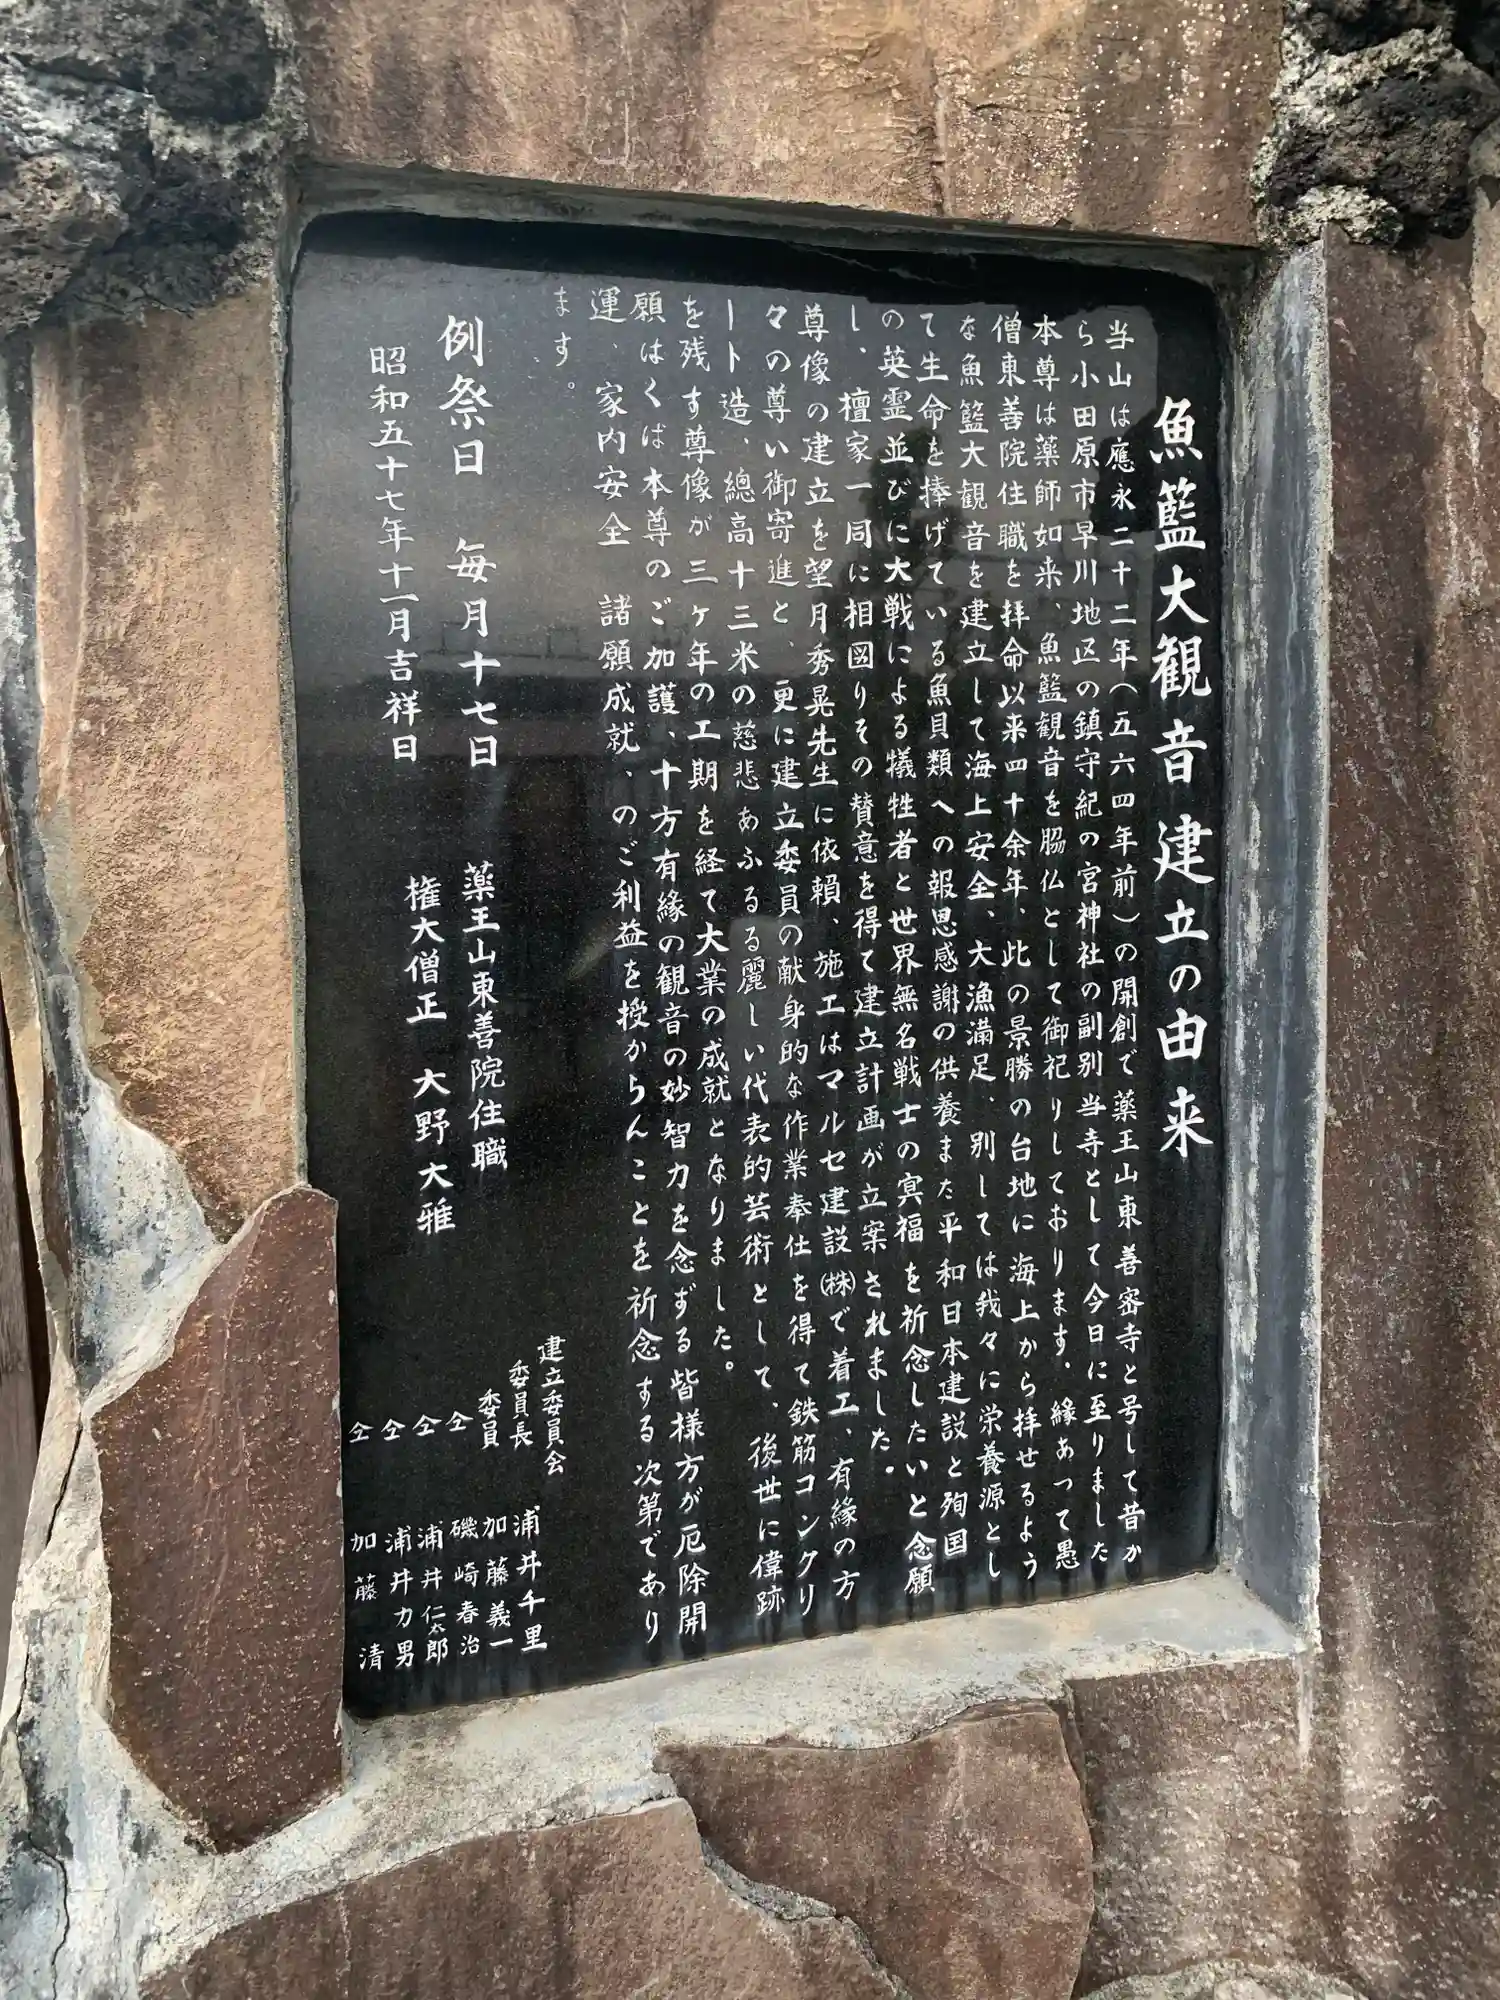 魚籃大観音建立の由来
当山は應永二十二年(五六四年前)の開創で薬王山東善密寺と号して昔か
ら小田原市早川地区の鎮守紀の宮神社の副别当寺として今日に至りました
本尊は薬師如来、魚籃観音を脇仏として御祀りしております。縁あって愚
僧東善院住職を拝命以来四十余年、此の景勝の台地に海上から拝せるよう
な魚籃大観音を建立して海上安全、大漁満足、別しては我々に栄養源とし
て生命を捧げている魚貝類への報恩感謝の供養また平和日本建設と殉国
の英霊並びに大戦による犠牲者と世界無名戦士の冥福を祈念したいと念願
し、檀家一同に相図りその賛意を得て建立計画が立案されました。
尊像の建立を望月秀晃先生に依頼、施工はマルセ建設㈱で着工、有縁の方
々の尊い御寄進と、更に建立委員の献身的な作業奉仕を得て鉄筋コンクリ
ート造、總高十三米の慈悲あふるる麗しい代表的芸術として、後世に偉跡
を残す尊像が三ヶ年の工期を経て大業の成就となりました。
願はくば本尊のご加護、十方有縁の観音の妙智力を念ずる皆様方が厄除開
運、家内安全 諸願成就、のご利益を授からんことを祈念する次第であり
ます。
例祭日 毎月十七日
昭和五十七年十一月吉祥日
薬王山東善院住職
権大僧正 大野大雅
建立委員会
委員長 浦井千里
委員 加藤義一
仝 磯崎春治
仝 浦井仁太郎
仝 浦井力男
仝 加藤清